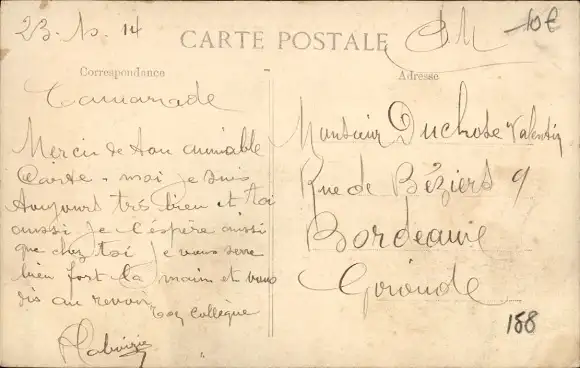 23. 10. 14
CARTE POSTALE
FM
10€
Correspondance
Adresse
Camarade
Merci de ton aimable
Carte. moi je suis
toujours très bien et toi
aussi je l'éspère aussi
que chez toi je vous serre
bien fort la main et vous
dis au revoir
ton collègue
Monsieur Duchose Valentin
Rue de Béziers 9
Bordeaux
Gironde
188